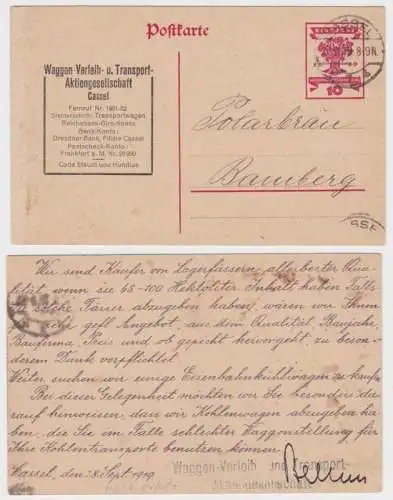 Postkarte
Waggon-Verleih- u. Transport-
Aktiengesellschaft
Cassel
Fernruf Nr.
Transportwagen
Reichsbank-Giro-Konto
Bank-Konto:
Dresdner Bank, Filiale Cassel
Postscheck-Konto:
Frankfurt a. M. Nr.
Code Staudt und Hundius
10
Polarbräu
Bamberg
Wir sind Käufer von Lagerfässern allerbester Qua-
lität, wenn sie 45-100 Hektoliter Inhalt haben. Falls
solche Fässer abzugeben haben, wären wir Ihnen
gefl. Angebot, aus dem Qualität, Baujahr,
Baufirma, Preis und ob gepicht hervorgeht, zu beson-
derem Dank verpflichtet.
Weiter suchen wir einige Eisenbahnkühlwagen zu kaufen.
Bei dieser Gelegenheit möchten wir Sie besonders da-
rauf hinweisen, dass wir Kohlenwagen abzugeben ha-
ben, die Sie im Falle schlechter Waggonstellung für
Ihre Kohlentransporte benutzen können.
Cassel, den 28. Sept. 1919
Waggon-Verleih- und Transport-
Aktiengesellschaft